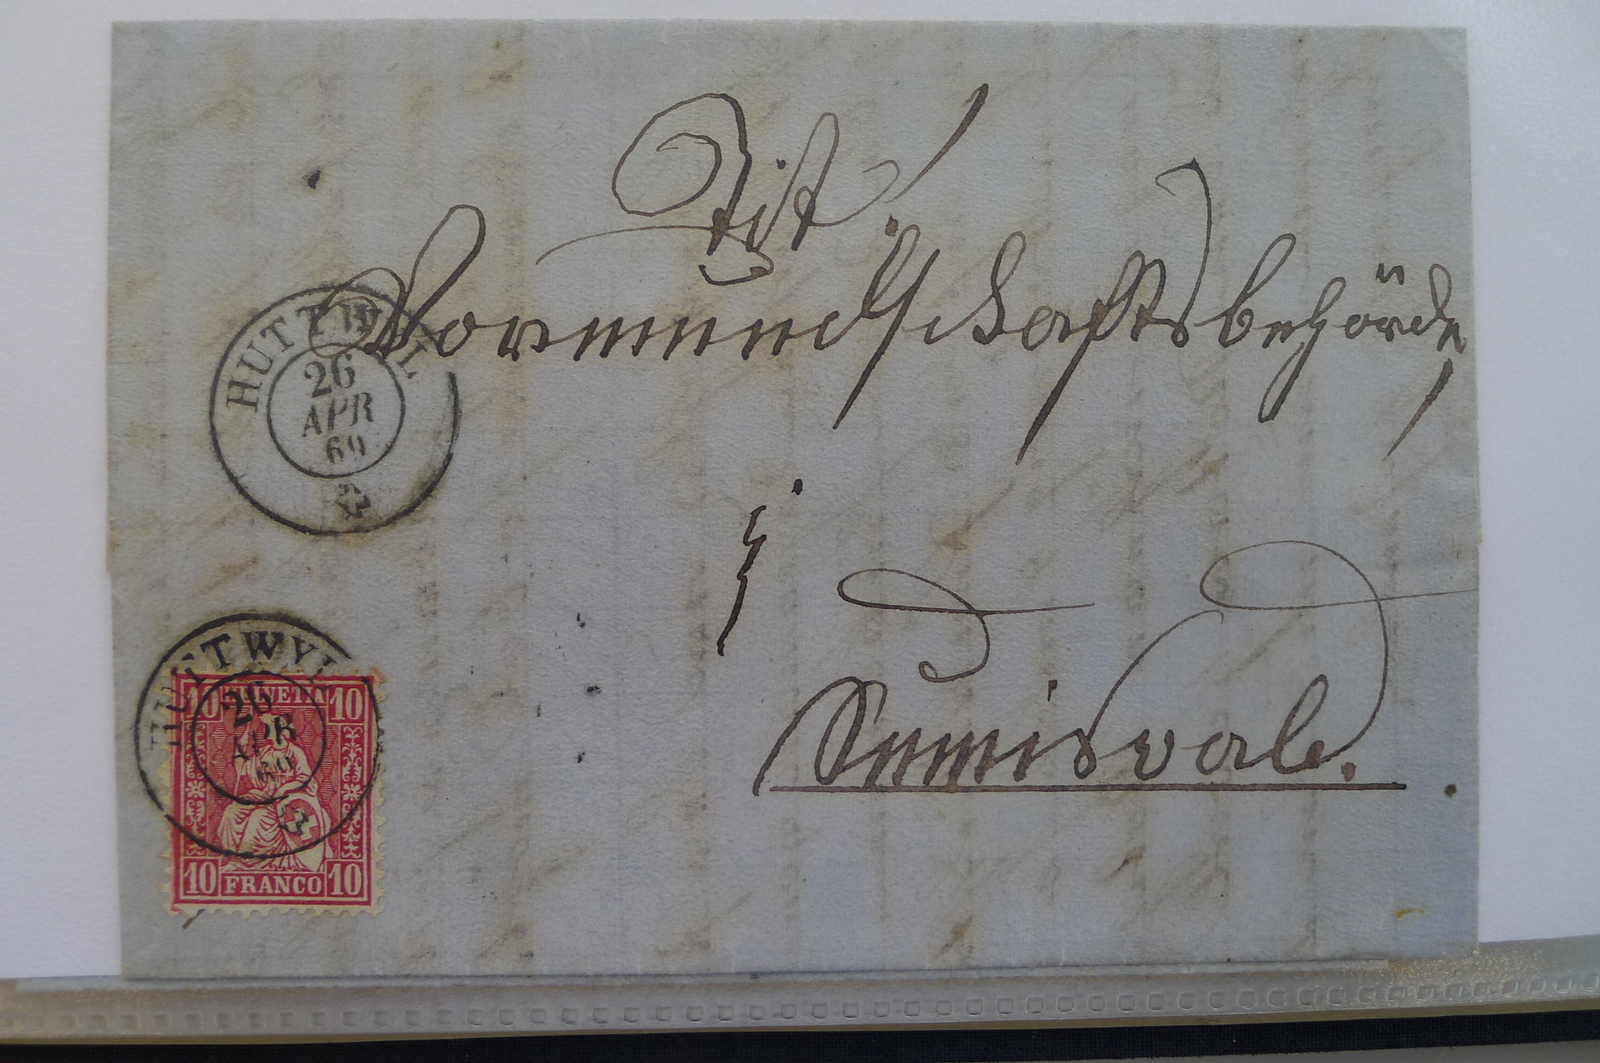 Tit.
Vormundschaftsbehörde
HUTTWYL
26
APR
69
Sumiswald.
HUTTWYL
26
APR
69
10 HELVETIA 10
10 FRANCO 10